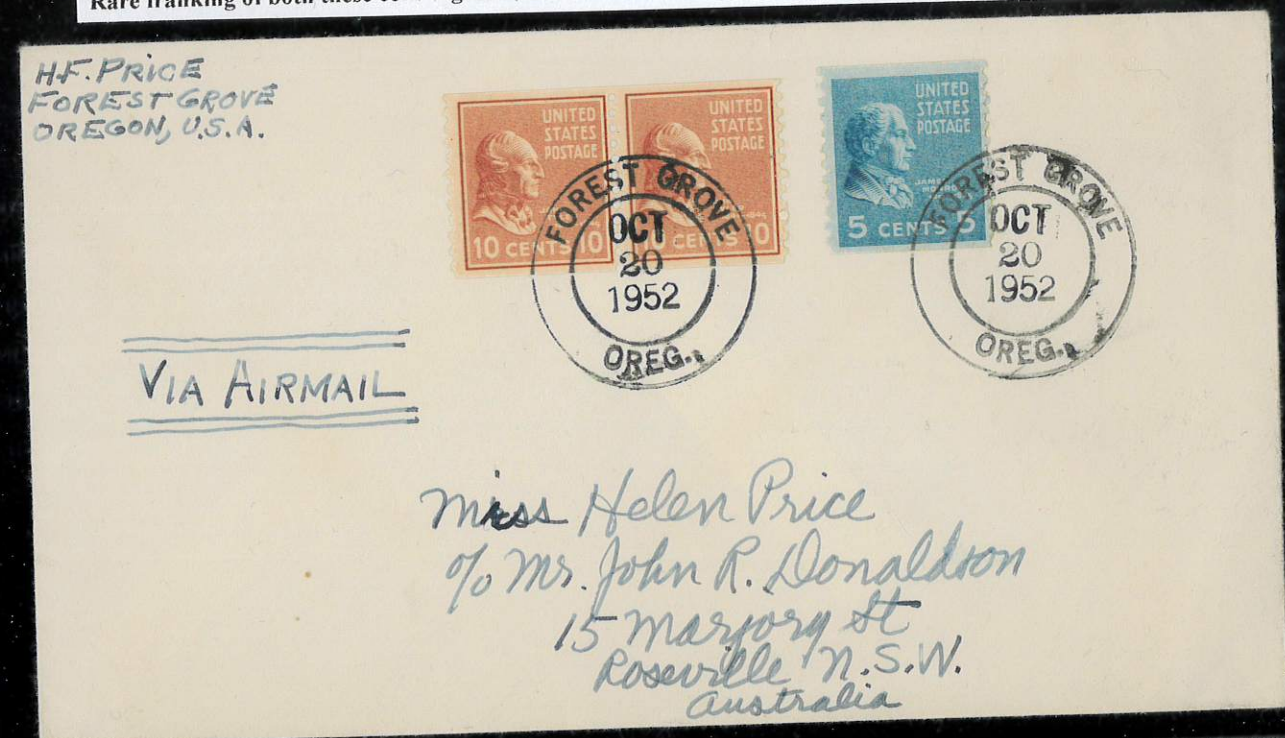 Rare franking of both these
H.F. PRICE
FOREST GROVE
OREGON, U.S.A.
UNITED
STATES
POSTAGE
10 CENTS 10
UNITED
STATES
POSTAGE
CENTS
UNITED
STATES
POSTAGE
JAMES
MONROE
5 CENTS 5
FOREST GROVE
OCT
20
1952
OREG.
FOREST GROVE
OCT
20
1952
OREG.
VIA AIRMAIL
Miss Helen Price
c/o Mr. John R. Donaldson
15 Marjory St
Roseville N.S.W.
Australia